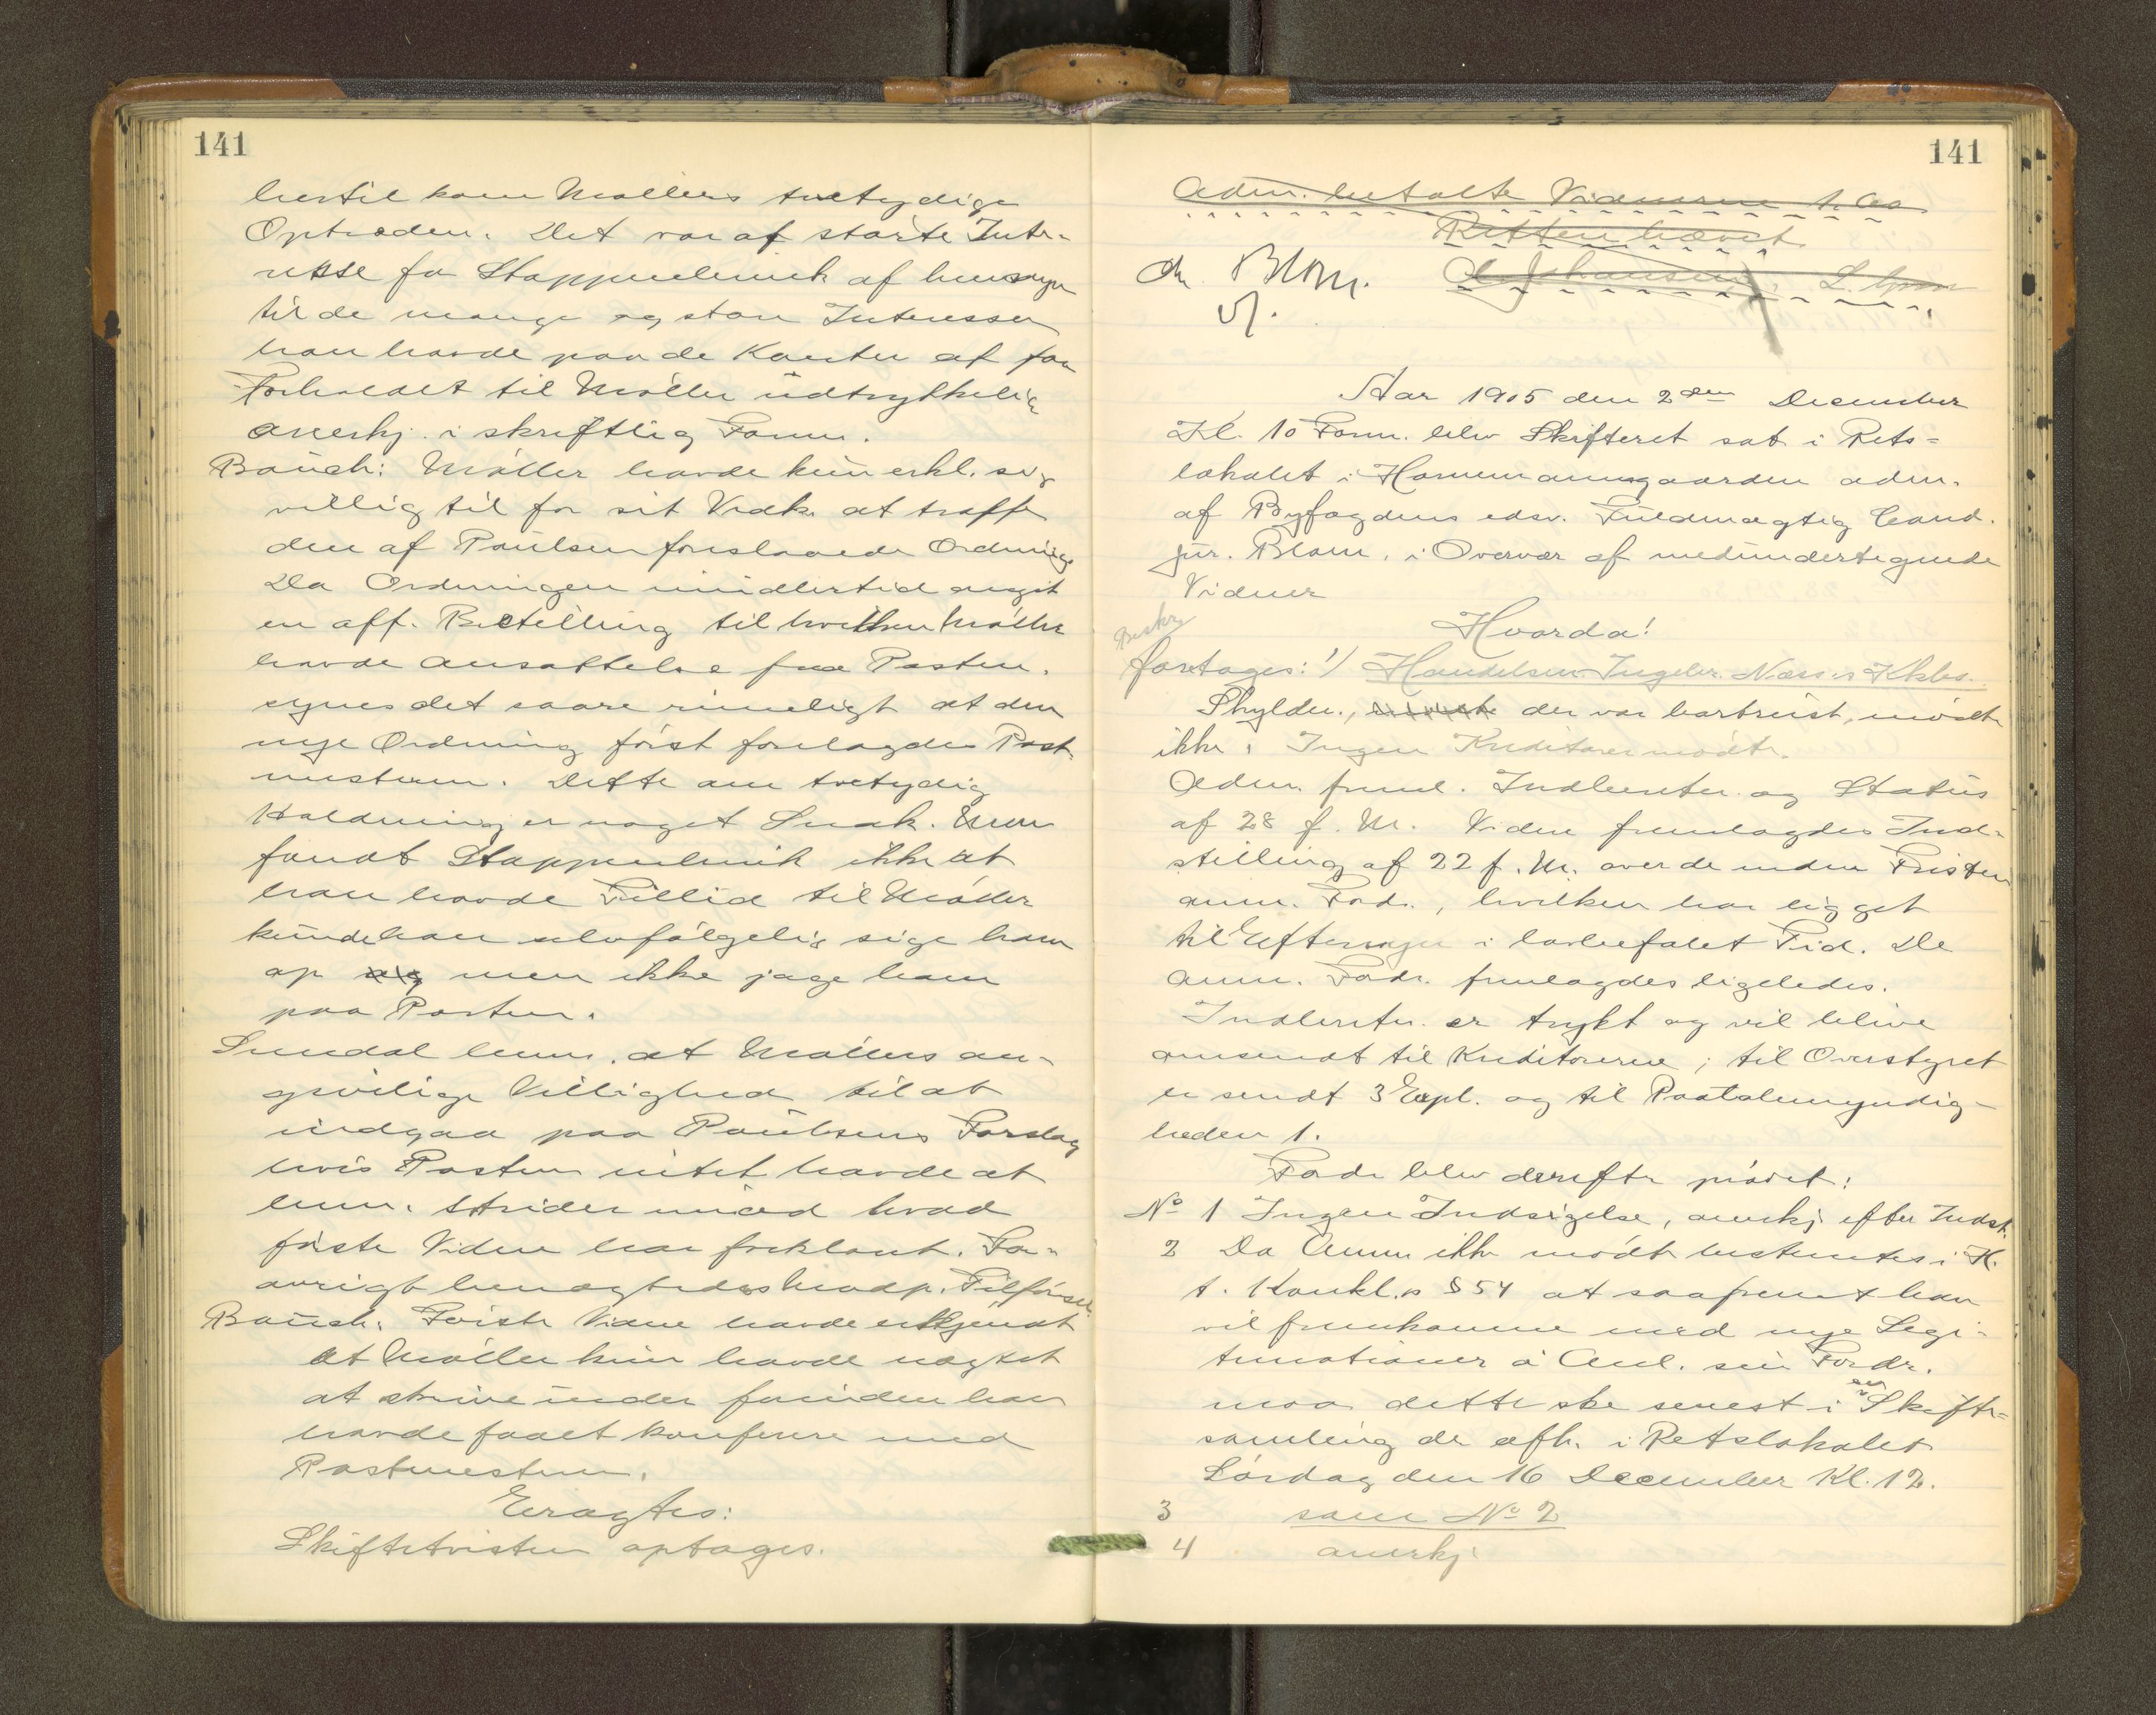 141
hertil kom Møllers tvetydige
Optræden. Det var af største Inte-
resse for Stoppenbrink af hensyn
til de mange og store Interesser
han havde paa de Kanter at faa
Forholdet til Møller udtrykkelig
anerkj. i skriftlig Form.
Bauch: Møller havde kun erkl. sig
villig til for sit Vedk. at træffe
den af Paulsen foreslaaede Ordning
Da Ordningen imidlertid angik
en off. Bestilling til hvilken Møller
havde Ansættelse fra Posten.
synes det saare rimeligt at den
nye Ordning først forelagdes Post
mesteren. Dette om tvetydig
Holdning er noget Snak. Men
fandt Stoppenbrink ikke at
han havde Tillid til Møller
kunde han selvfølgelig sige ham
op og men ikke jage ham
paa Porten.
Sundal bem. at Møllers an-
givelige Villighed til at
indgaa paa Paulsens Forslag
hvis Posten intet havde at
bem. strider imod hvad
første Vidne har forklaret. For-
øvrigt benægtedes Modp. Tilførsel
Bauch. Første Vidne havde erkjendt
at Møller kun havde nægtet
at skrive under forinden han
havde faaet konferere med
Postmesteren.
Eragtes:
Skiftetvisten optages.
141
Adm. betalte Vidnerne 1. 60
Retten hævet
Chr Blom. O. Johansen, L.
Vf.
Aar 1905 den 2den December
Kl. 10 Form. blev Skifteret sat i Rets-
lokalet i Hornemannsgaarden adm.
af Byfogdens edsv. Fuldmægtig Cand.
jur. Blom. i Overvær af medundertegnede
Vidner
Hvorda!
Beskr
foretages: 1/ Handelsm. Ingebr. Næss's Kkbo.
Skyldn., der var bortreist, mødte
ikke. Ingen Kreditorer mødte.
Adm. freml. Indberetn. og Status
af 28 f. M. Videre fremlagdes Ind-
stilling af 22 f. M. over de inden Fristen
anm. Fodr., hvilken har ligget
til Eftersyn i lovbefalet Tid. De
anm. Fodr. fremlagdes ligeledes.
Indberetn. er trykt og vil blive
omsendt til Kreditorerne; til Overstyret
er sendt 3 Expl. og til Paatalemyndig-
heden 1.
Fodr. blev derefter prøvet:
No 1 Ingen Indsigelse, anerkj. efter Indst.
2 Da Anm. ikke mødte bestemtes i H.
t. Konkl.s § 54 at saafremt han
vil fremkomme med nye Legi-
timationer i Anl. sin Fordr.
maa dette ske senest i en Skifte-
samling der afh. i Retslokalet
Lørdag den 16 December Kl. 12.
3 som No 2
4 anerkj.